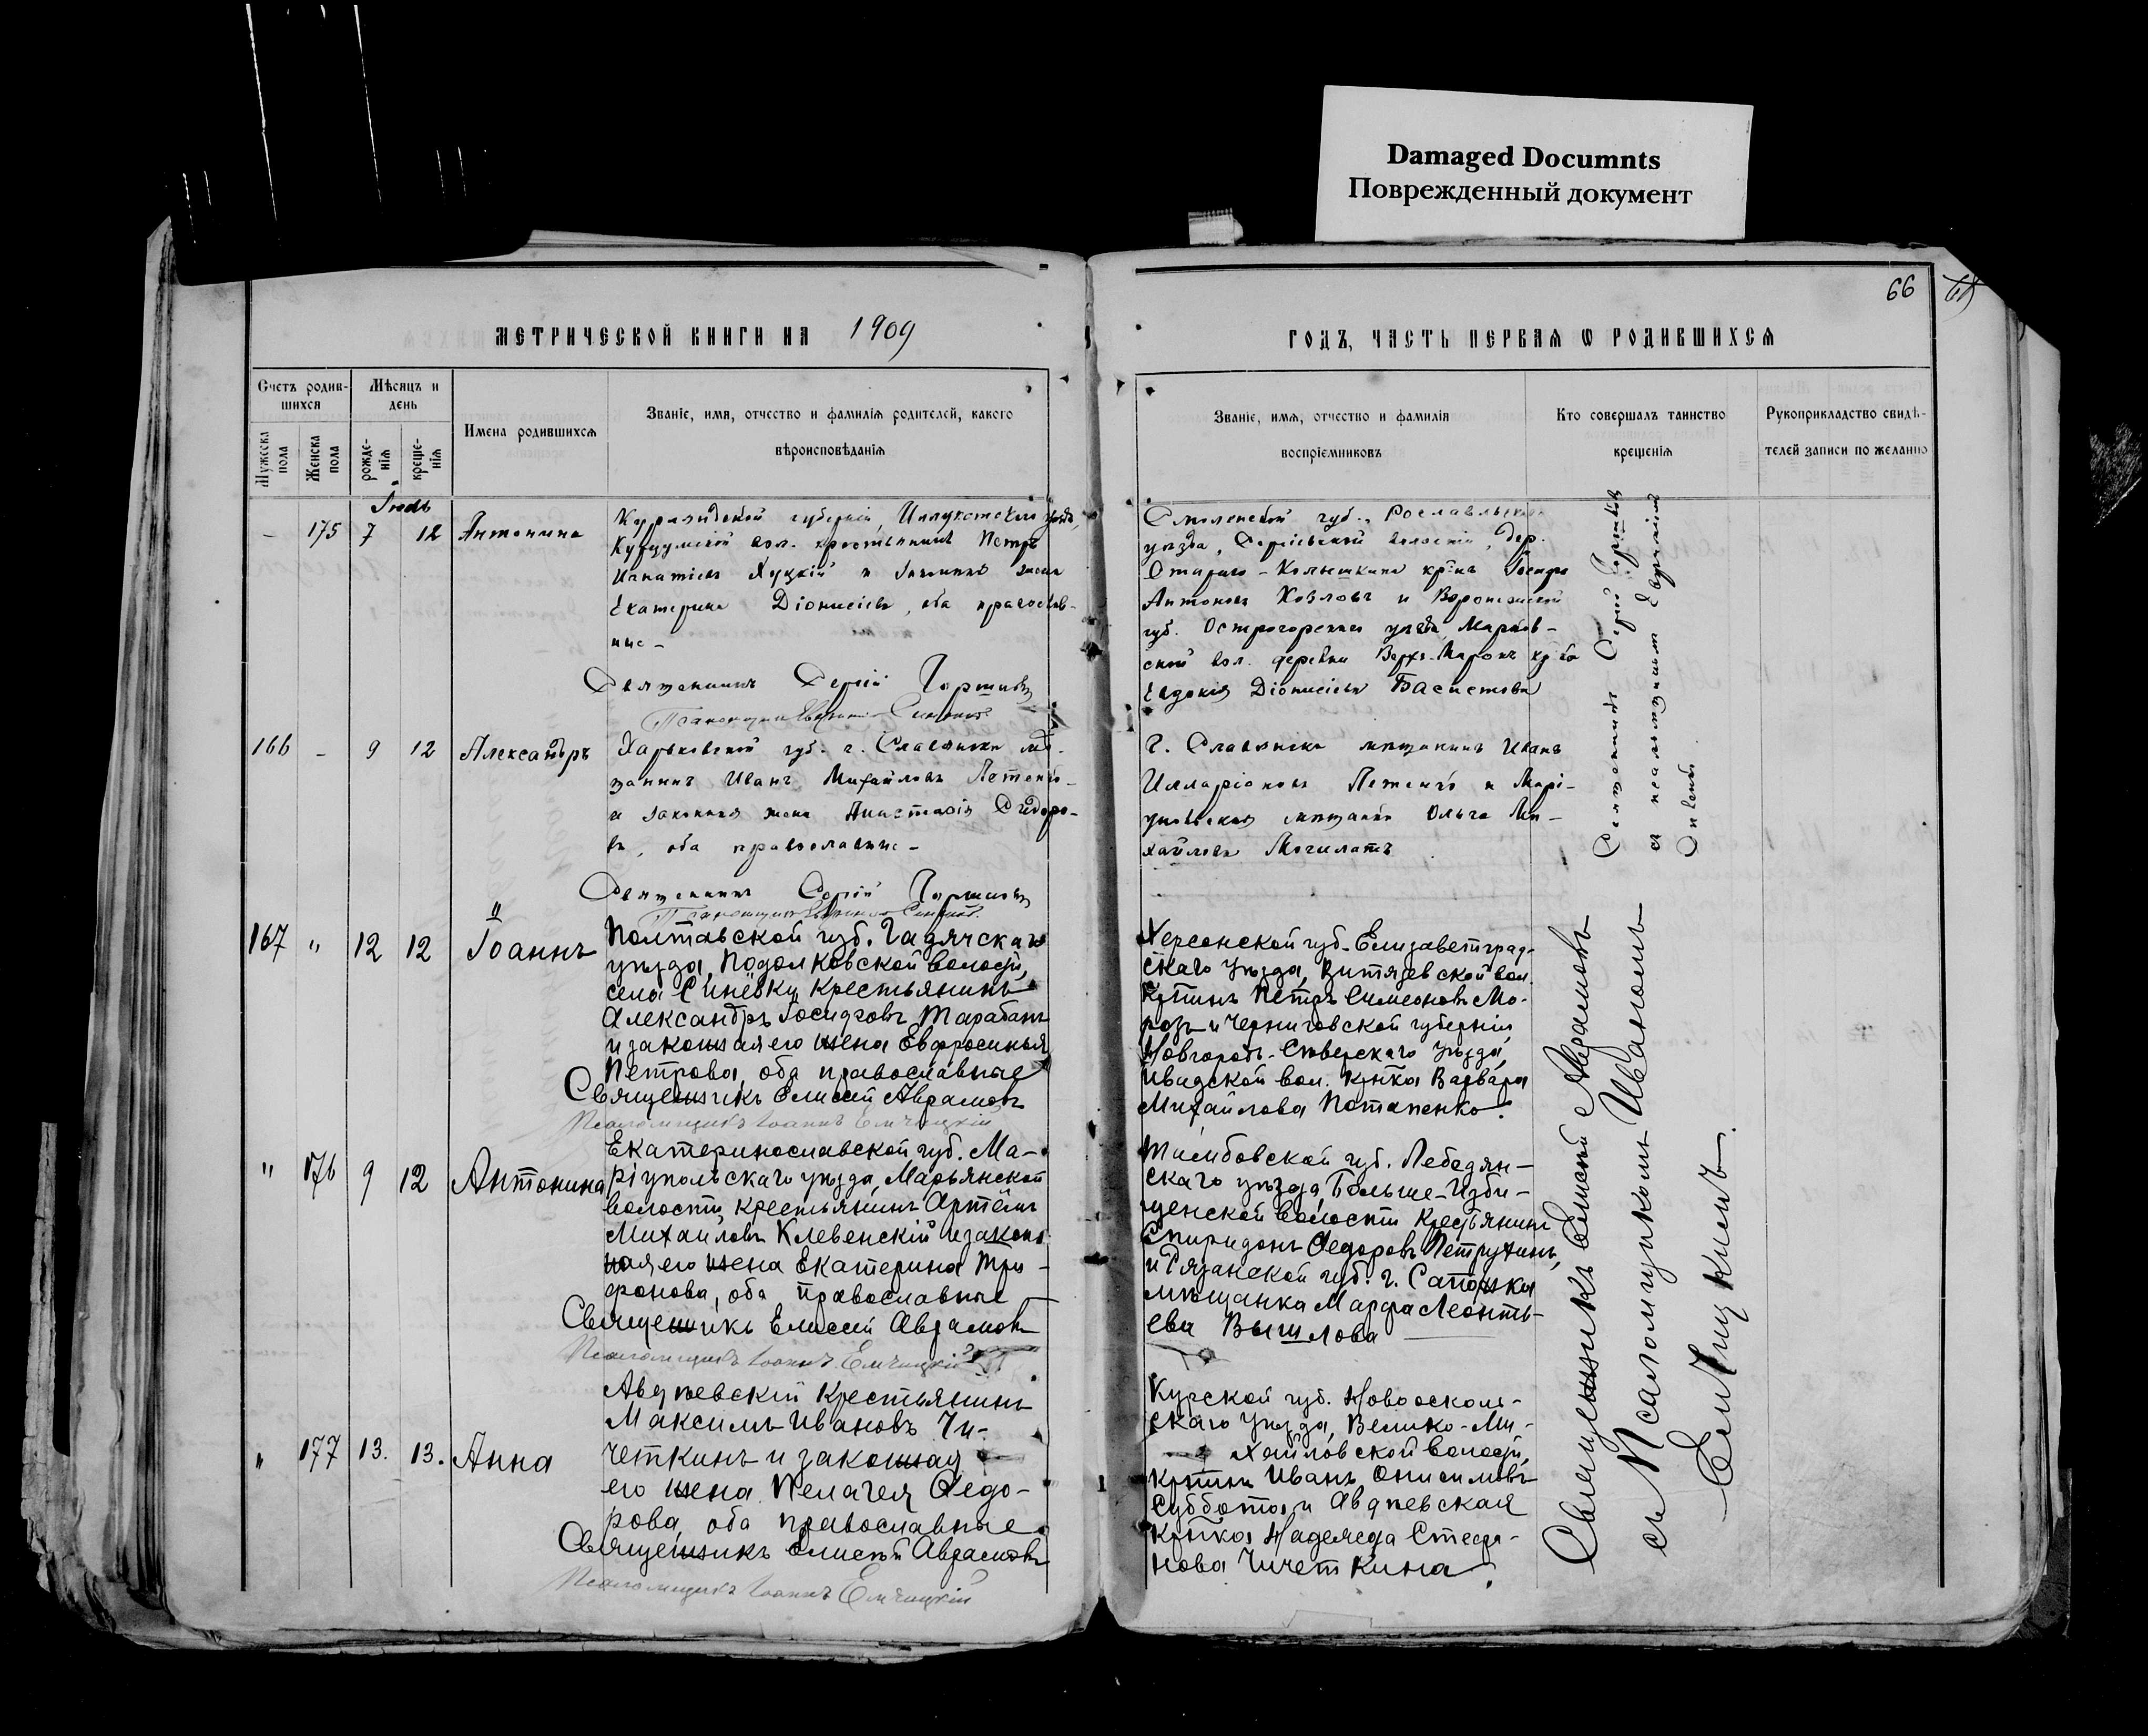 Damaged Documnts
Поврежденный документ
66
МЕТРИЧЕСКОЙ КНИГИ НА 1909
ГОДЪ, ЧАСТЬ ПЕРВАЯ Ѡ РОДИВШИХСЯ
Счетъ родив-
шихся
Мужеска
пола
Женска
пола
Мѣсяцъ и
день
рожде-
нія
креще-
нія
Имена родившихся
Званіе, имя, отчество и фамилія родителей, какого
вѣроисповѣданія
Званіе, имя, отчество и фамилія
воспріемниковъ
Кто совершалъ таинство
крещенія
Рукоприкладство свидѣ-
телей записи по желанію
– 175 7 12 Антонина
Курляндской губерніи, Иллукстскаго уѣзда,
вол. крестьянинъ Петръ
Игнатіевъ и законная жена
Екатерина Діонисіева, оба православ-
ные –
Священникъ Сергій
Смоленской губ., Рославльскаго
уѣзда, волости, дер.
Антоновъ Козловъ и Воронежской
губ. Острогожскаго уѣзда, Марков-
ской вол. деревни
Евдокія Діонисіева
166 – 9 12 Александръ
Харьковской губ. г. Славянска мѣ-
щанинъ Иванъ Михайловъ
и законная жена Анастасія Сидоро-
ва, оба православные –
Священникъ Сергій
г. Славянска мѣщанинъ Иванъ
Илларіоновъ и Марі-
упольская мѣщанка Ольга Ми-
хайлова Могилатъ
Священникъ Сергій
съ псаломщикомъ
167 " 12 12 Іоаннъ
Полтавской губ. Гадячскаго
уѣзда, Подолковской волости,
села Синевки крестьянинъ
Александръ Іосифовъ Тарабанъ
и законная его жена Евфросинья
Петрова, оба православные
Священникъ Елисей Аврамовъ
Псаломщикъ Іоаннъ Емчицкій
Херсонской губ. Елизаветград-
скаго уѣзда, Витязевской вол.
Кр-тинъ Петръ Симеоновъ Мо-
розъ и Черниговской губерніи,
Новгородъ-Сѣверскаго уѣзда,
вол. Кр-тка Варвара
Михайлова Потапенко.
" 176 9 12 Антонина
Екатеринославской губ. Ма-
ріупольскаго уѣзда, Марьянской
волости, крестьянинъ Артемъ
Михаиловъ Клевенскій и закон-
ная его жена Екатерина Три-
фонова, оба православные
Священникъ Елисей Аврамовъ
Псаломщикъ Іоаннъ Емчицкій
Тамбовской губ. Лебедян-
скаго уѣзда, Больше-Изби-
щенской волости крестьянинъ
Спиридонъ Ѳедоровъ Петрухинъ,
и Рязанской губ. г. Сапожка
мѣщанка Марфа Леонть-
ева
" 177 13. 13. Анна
Авдѣевскій крестьянинъ
Максимъ Ивановъ Чи-
четкинъ и законная
его жена Пелагея Ѳедо-
рова, оба православные
Священникъ Елисей Аврамовъ
Псаломщикъ Іоаннъ Емчицкій
Курской губ. Новоосколь-
скаго уѣзда, Велико-Ми-
хайловской волости,
Кр-тинъ Иванъ Онисимовъ
Суббота и Авдѣевская
Кр-тка Надежда Стефа-
нова Чичеткина.
Священникъ Елисей Аврамовъ
съ Псаломщикомъ Иваномъ
Емчицкимъ.